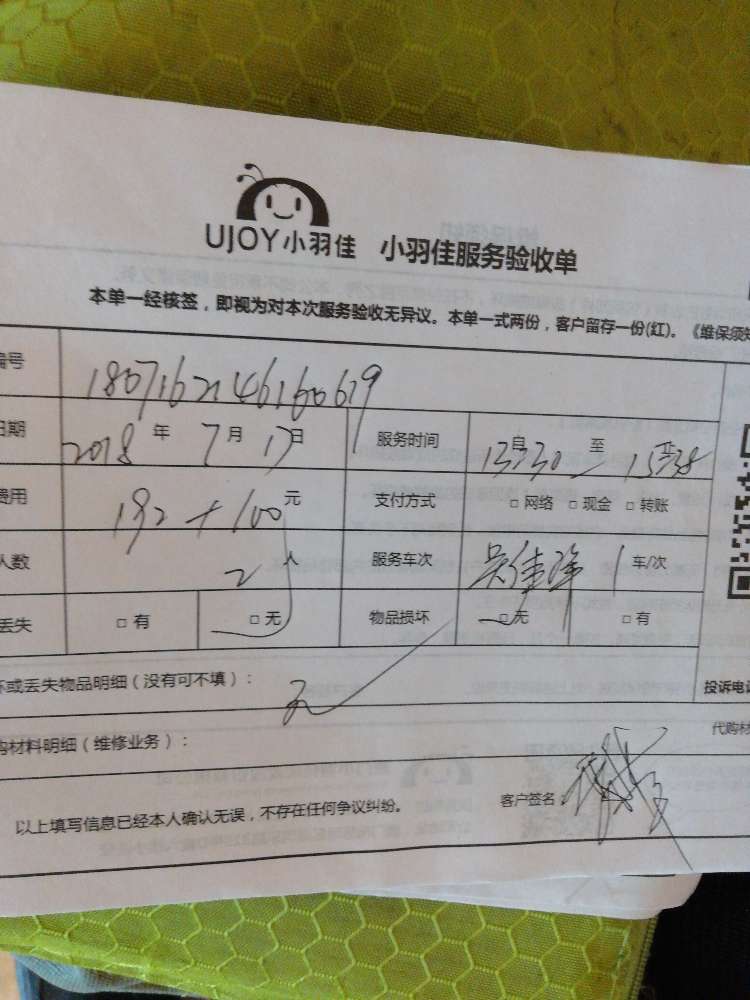 UJOY小羽佳 小羽佳服务验收单
本单一经核签，即视为对本次服务验收无异议。本单一式两份，客户留存一份(红)。《维保须知
编号 1807162146160619
日期 2018年7月17日 服务时间 自13:30至15:38
费用 192+100元 支付方式 □网络 □现金 □转账
人数 2人 服务车次 1车/次
丢失 □有 □无 物品损坏 □无 □有
坏或丢失物品明细（没有可不填）： 无
投诉电话
购材料明细（维修业务）：
代购材
以上填写信息已经本人确认无误，不存在任何争议纠纷。 客户签名：